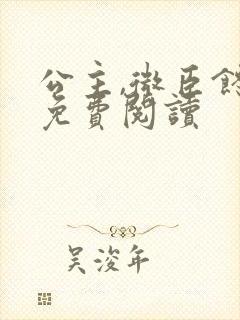 公主,微臣
免費閱讀
吴浚年